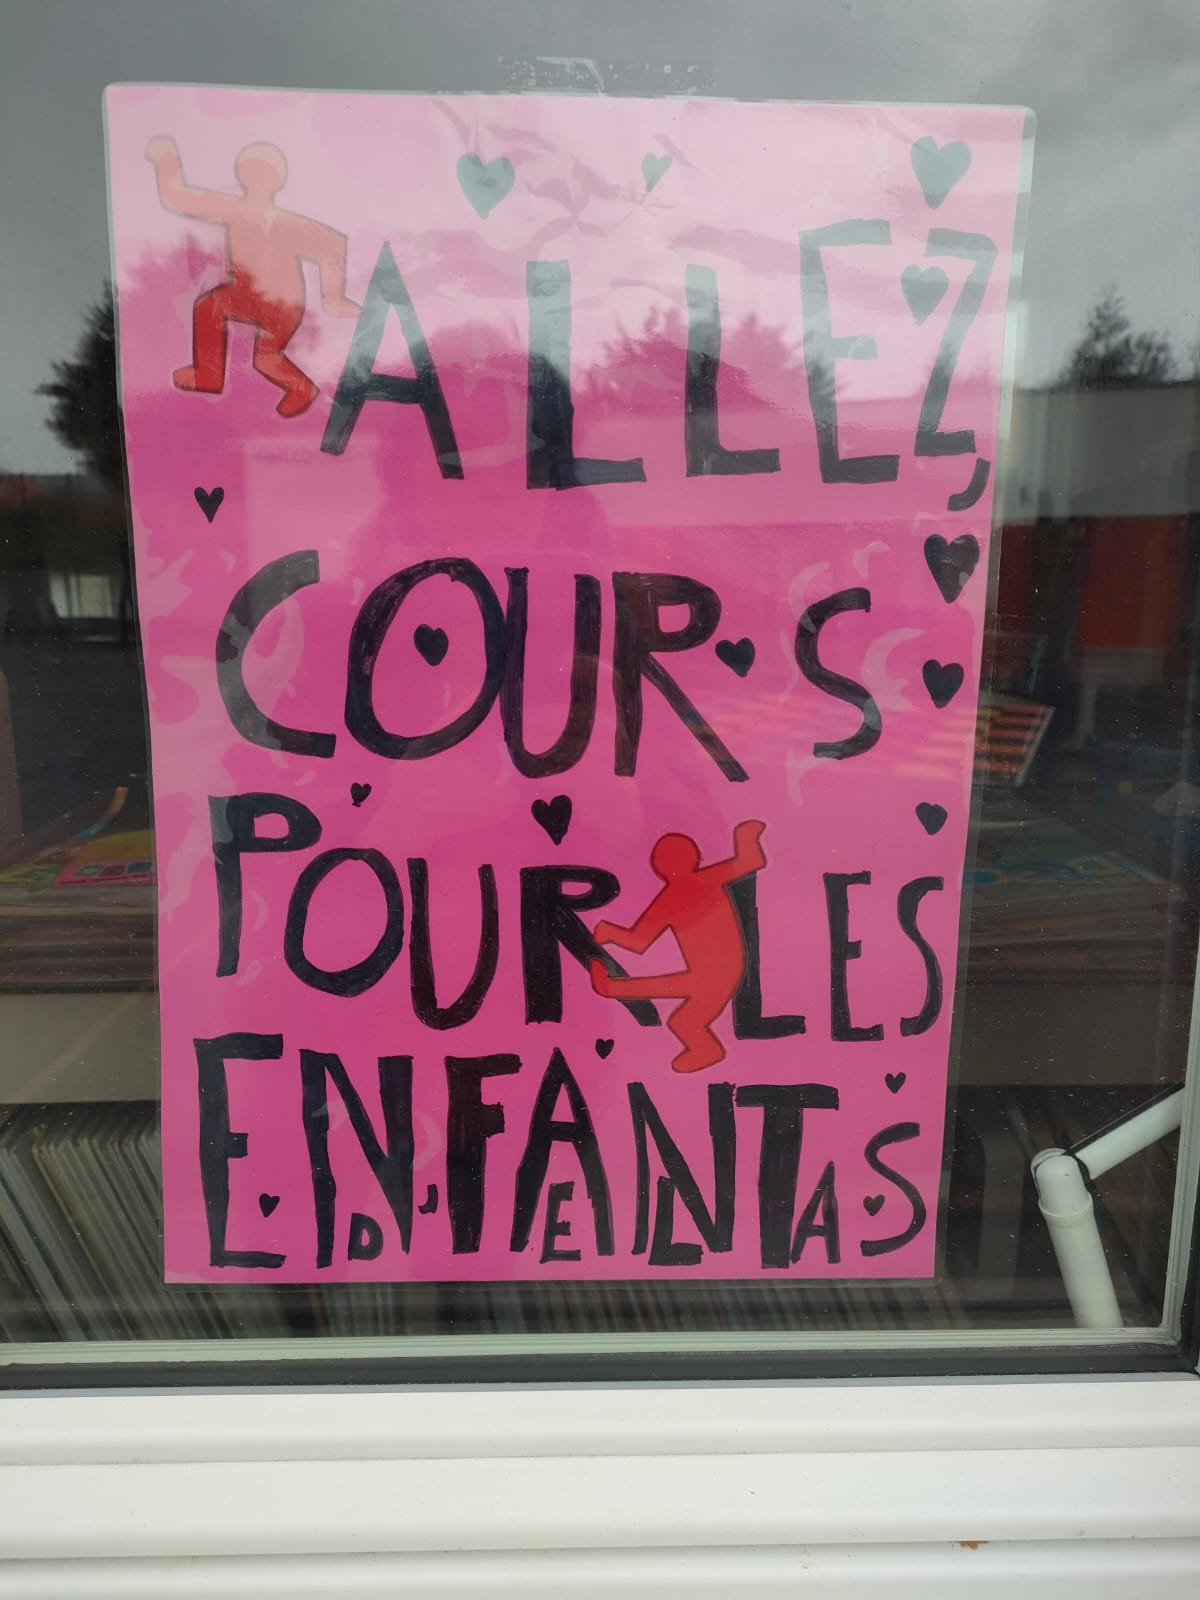 ALLEZ,
COURS
POUR LES
ENFANTS
D'ELA